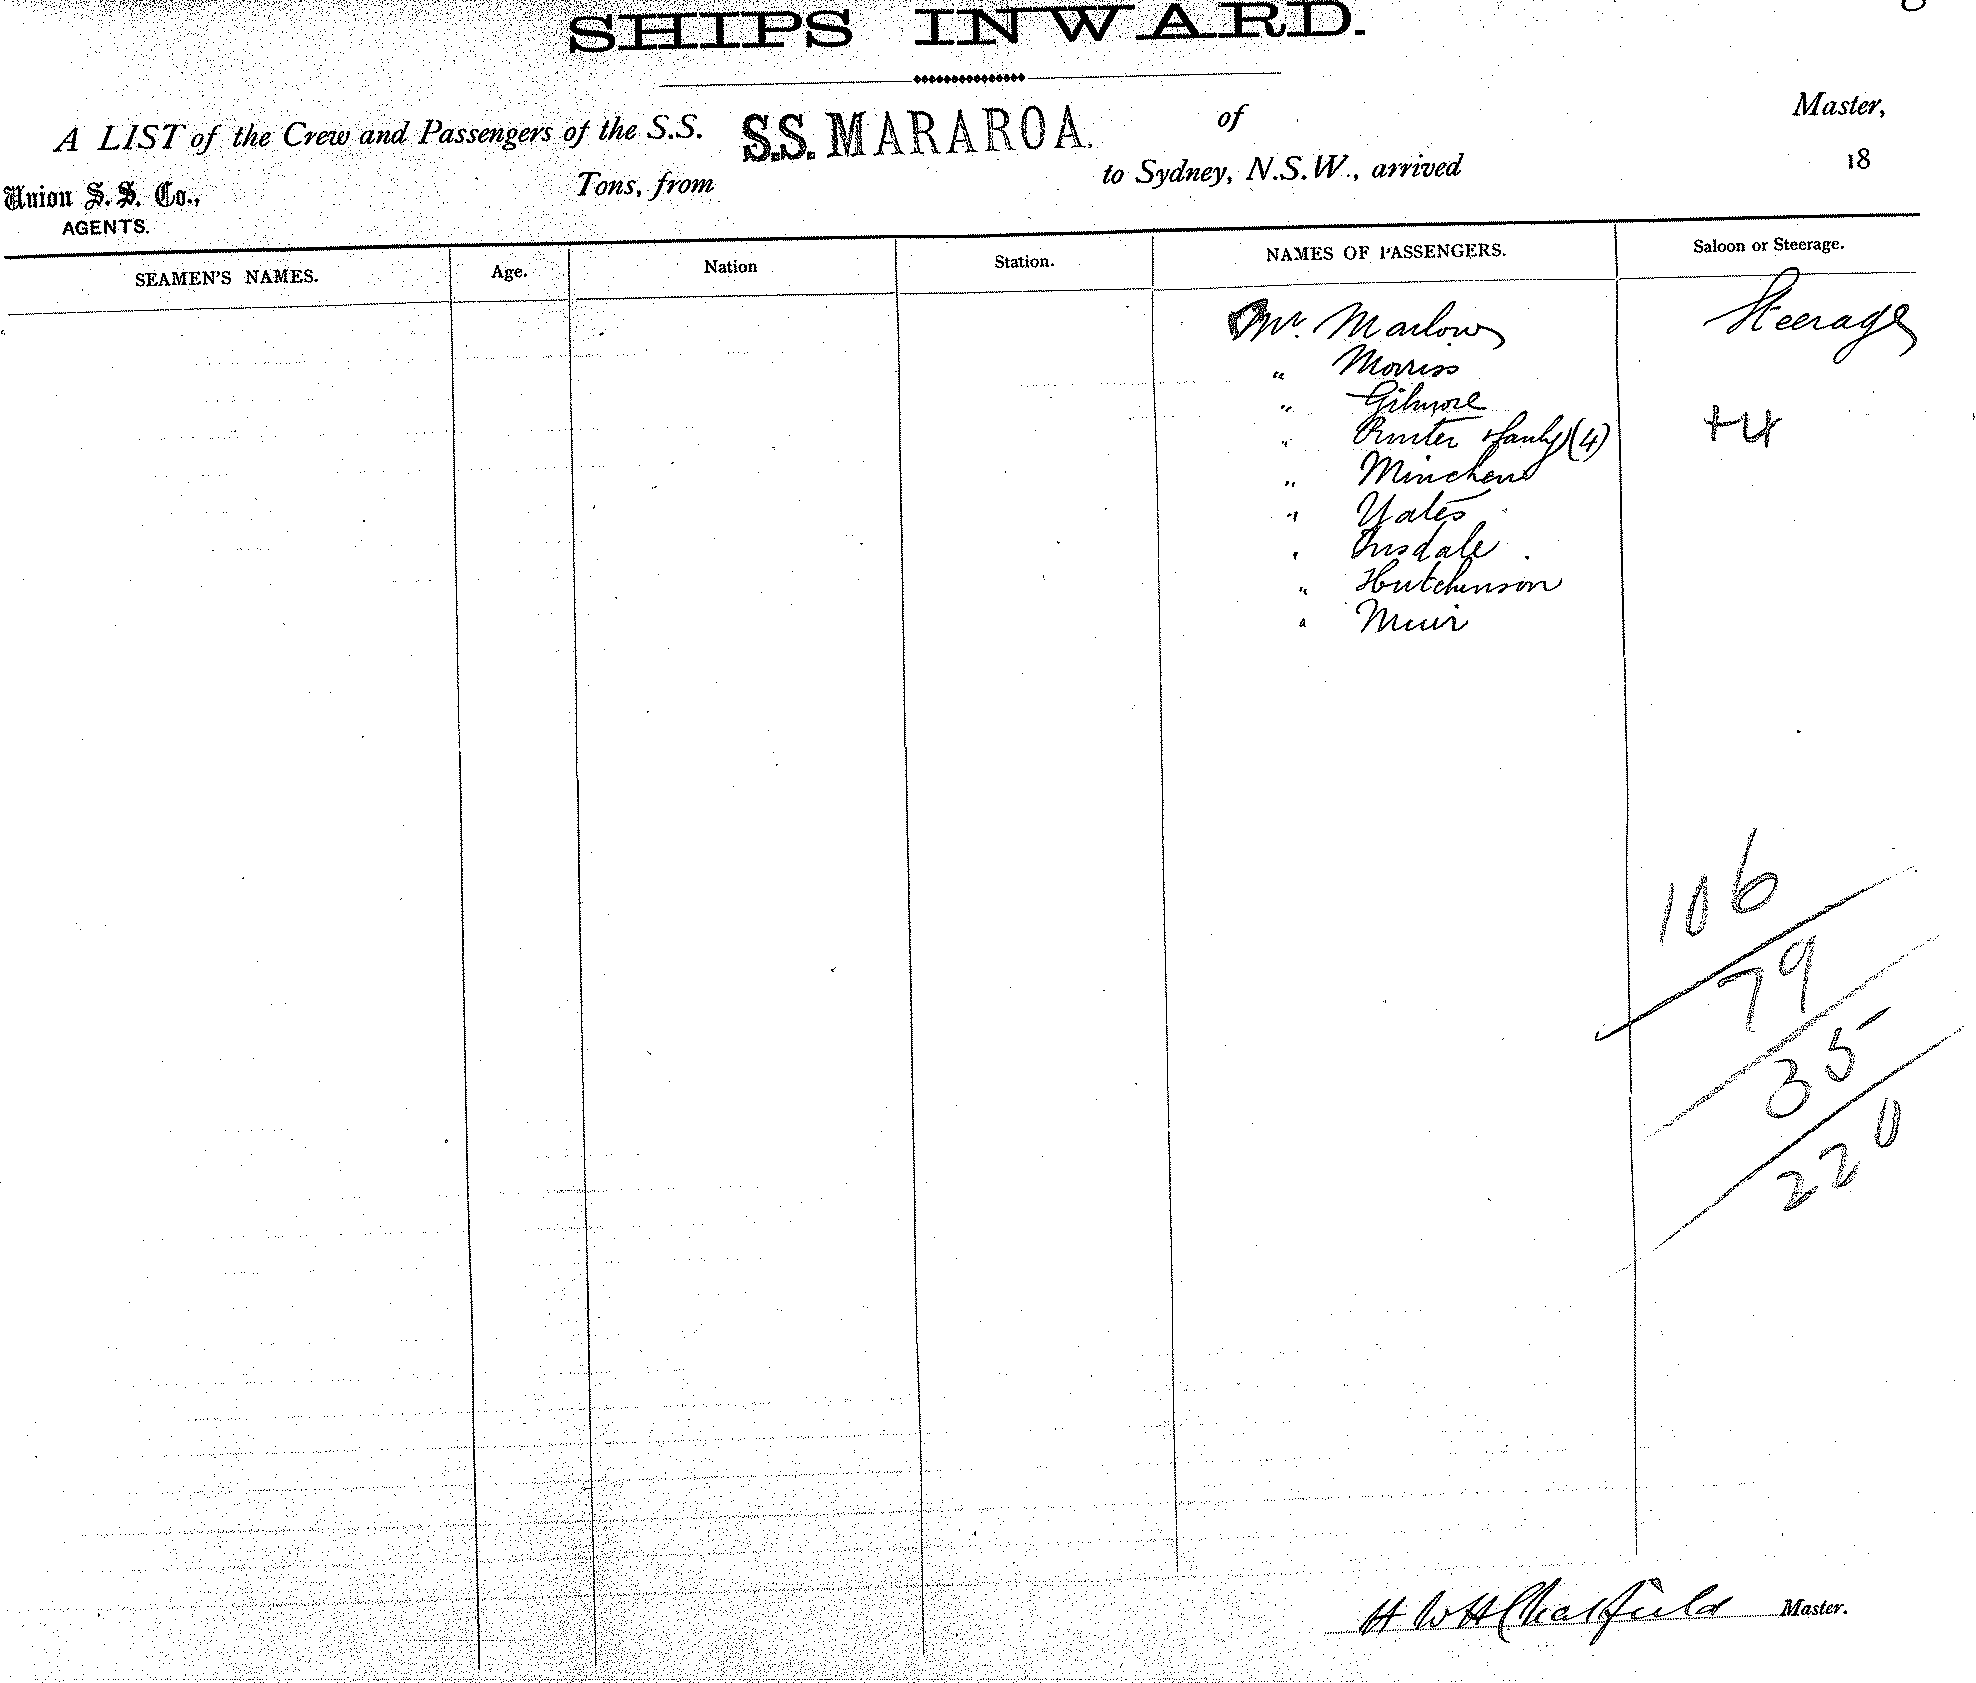 SHIPS INWARD.
A LIST of the Crew and Passengers of the S.S. S.S. MARAROA. of Master,
Union S. S. Co., Tons, from to Sydney, N.S.W., arrived 18
AGENTS.
SEAMEN'S NAMES. Age. Nation Station. NAMES OF PASSENGERS. Saloon or Steerage.
Mr. Marlow Steerage
" Morriss
" Gilmore
" & family (4) +4
" Minchen
" Yates
"
" Hutchinson
" Muir
106
79
35
220
H W H Chatfield Master.